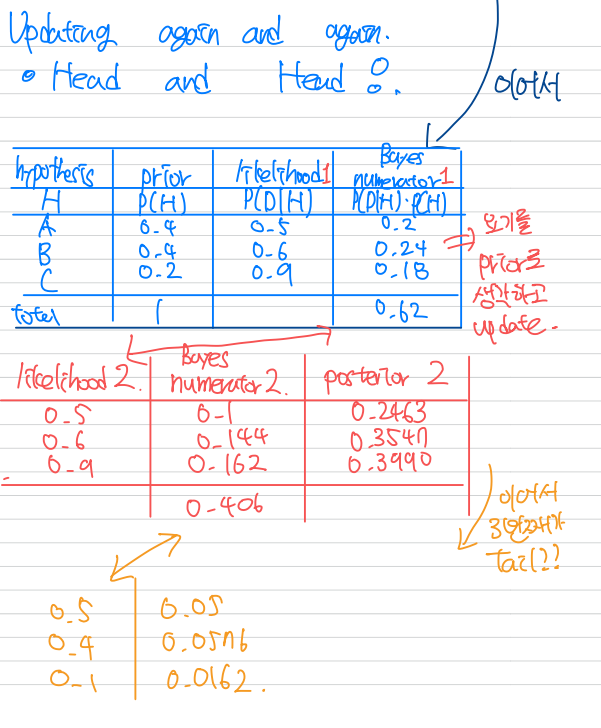 Updating again and again.
• Head and Head !.
이어서
hypothesis prior likelihood1 Bayes numerator1
H P(H) P(D|H) P(D|H)·P(H)
A 0.4 0.5 0.2
B 0.4 0.6 0.24
C 0.2 0.9 0.18
total 1 0.62
⇒ 요기를
prior로
생각하고
update.
likelihood 2. Bayes numerator 2. posterior 2
0.5 0.1 0.2463
0.6 0.144 0.3547
0.9 0.162 0.3990
0.406
이어서
3번째가
tail??
0.5 0.05
0.4 0.0576
0.1 0.0162.